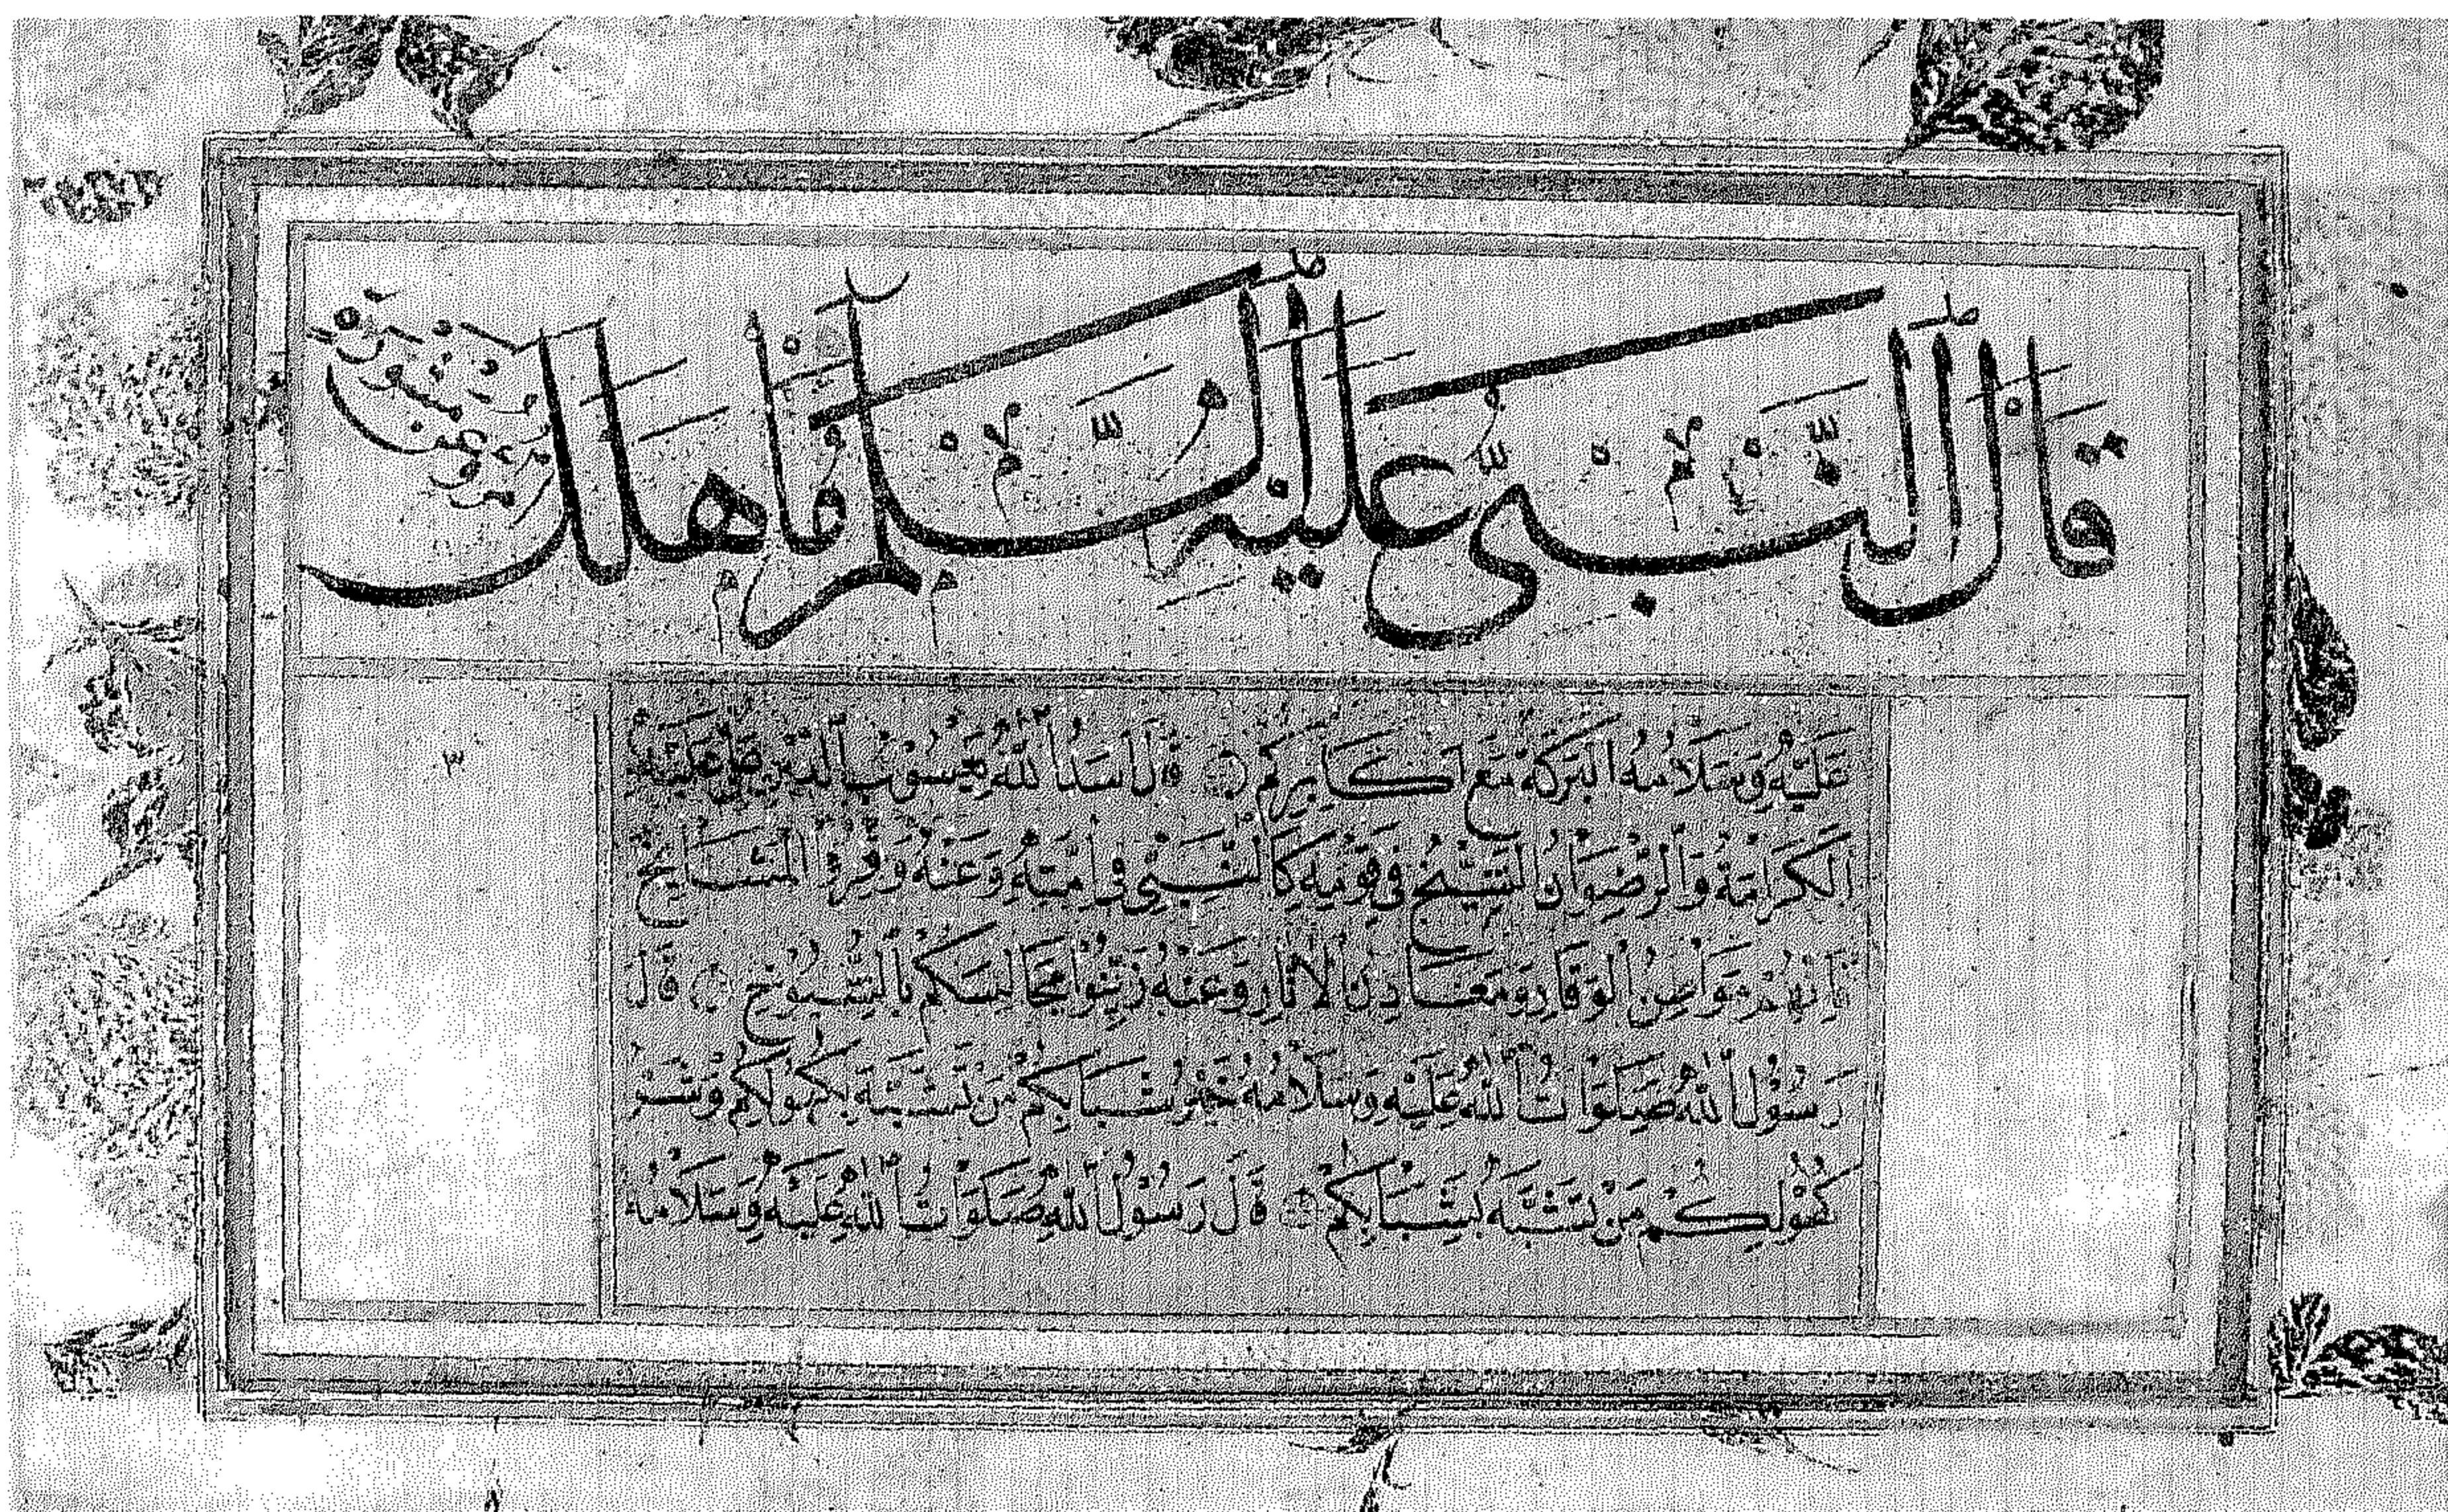 قال النبي عليه السلم ما هلك
عليه وسلامه البركة مع اكابركم قال اسد الله يعسوب الدين عليه
الكرامة والرضوان الشيخ في قومه كالنبي في امته وعنه وقروا المشايخ
فانهم الوقار ومعادن الاثار وعنه زينوا مجالسكم بالشيوخ قال
رسول الله صلوات الله عليه وسلامه خير شبابكم من تشبه بكهولكم وشر
كهولكم من تشبه بشبابكم قال رسول الله صلوات الله عليه وسلامه